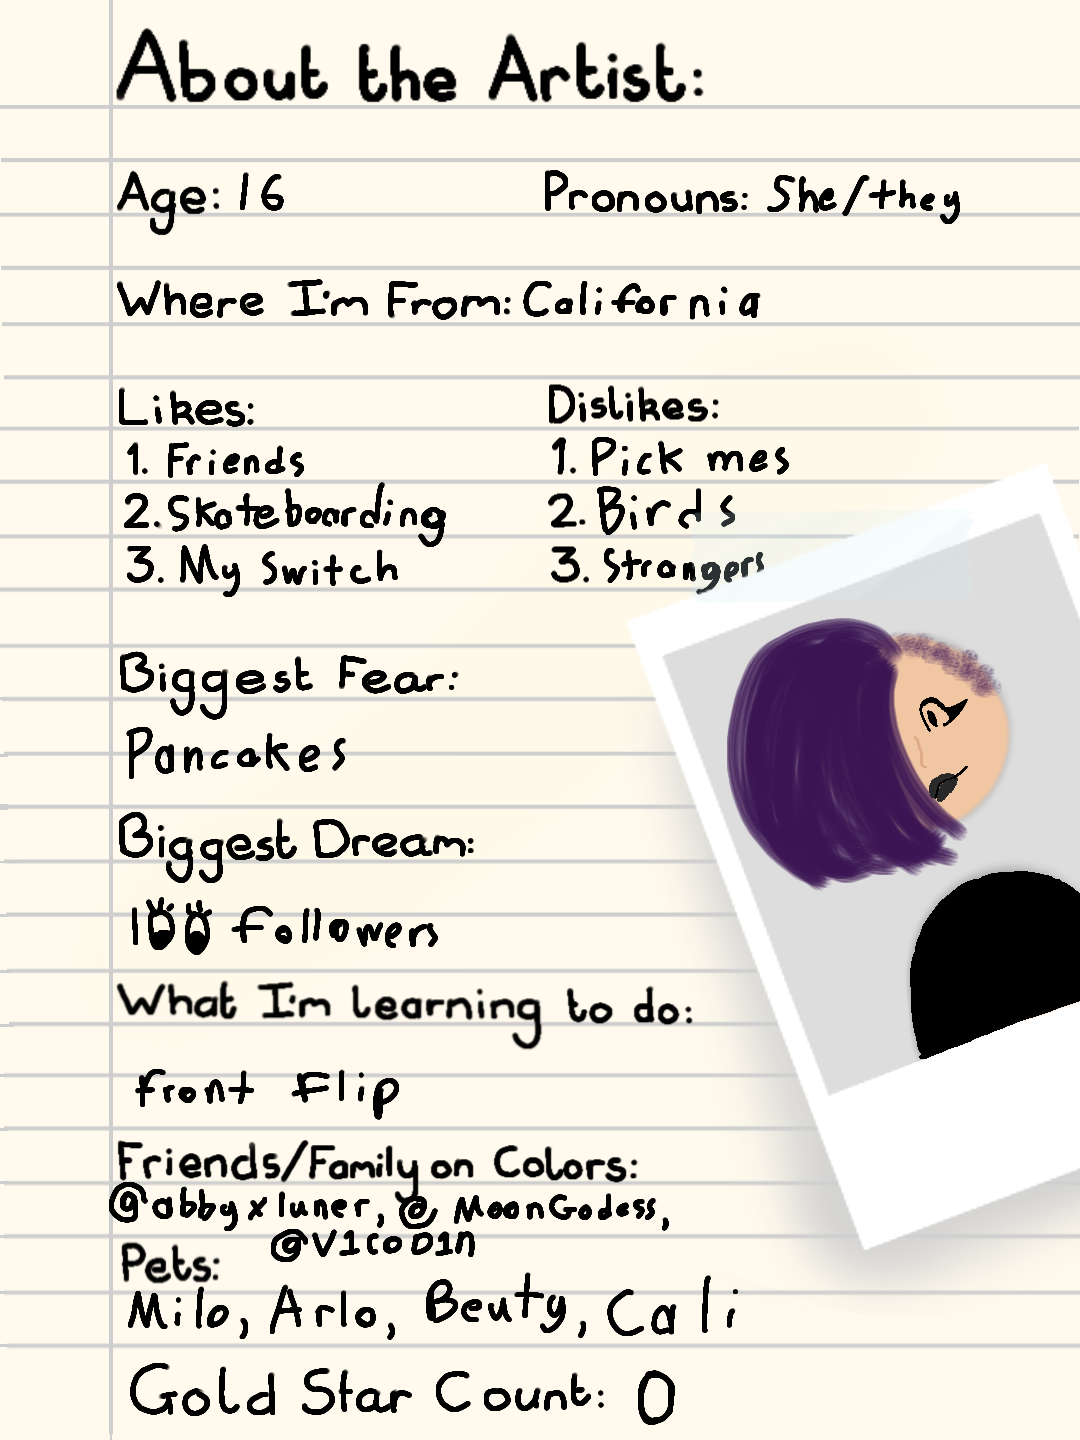 About the Artist:
Age: 16 Pronouns: She/they
Where I'm From: California
Likes: Dislikes:
1. Friends 1. Pick mes
2. Skateboarding 2. Birds
3. My Switch 3. Strangers
Biggest Fear:
Pancakes
Biggest Dream:
100 followers
What I'm learning to do:
front flip
Friends/Family on Colors:
@abbyxluner, @MoonGodess,
@V1coD1n
Pets:
Milo, Arlo, Beuty, Cali
Gold Star Count: 0